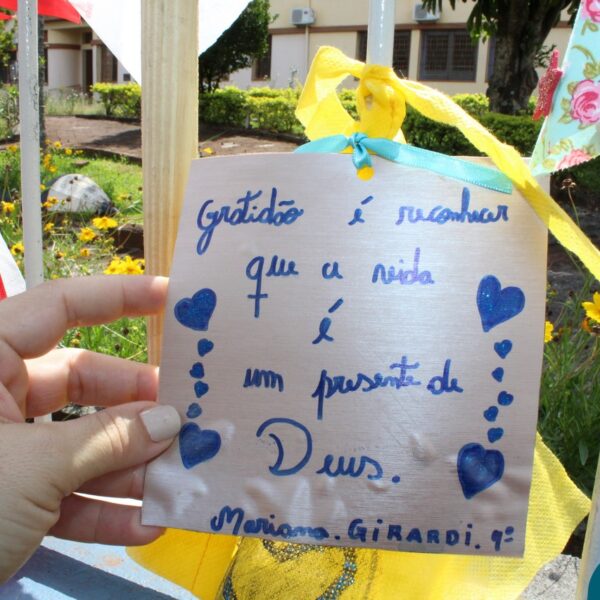 Gratidão é reconhecer
que a vida
é
um presente de
Deus.
Mariana. GIRARDI. 9º